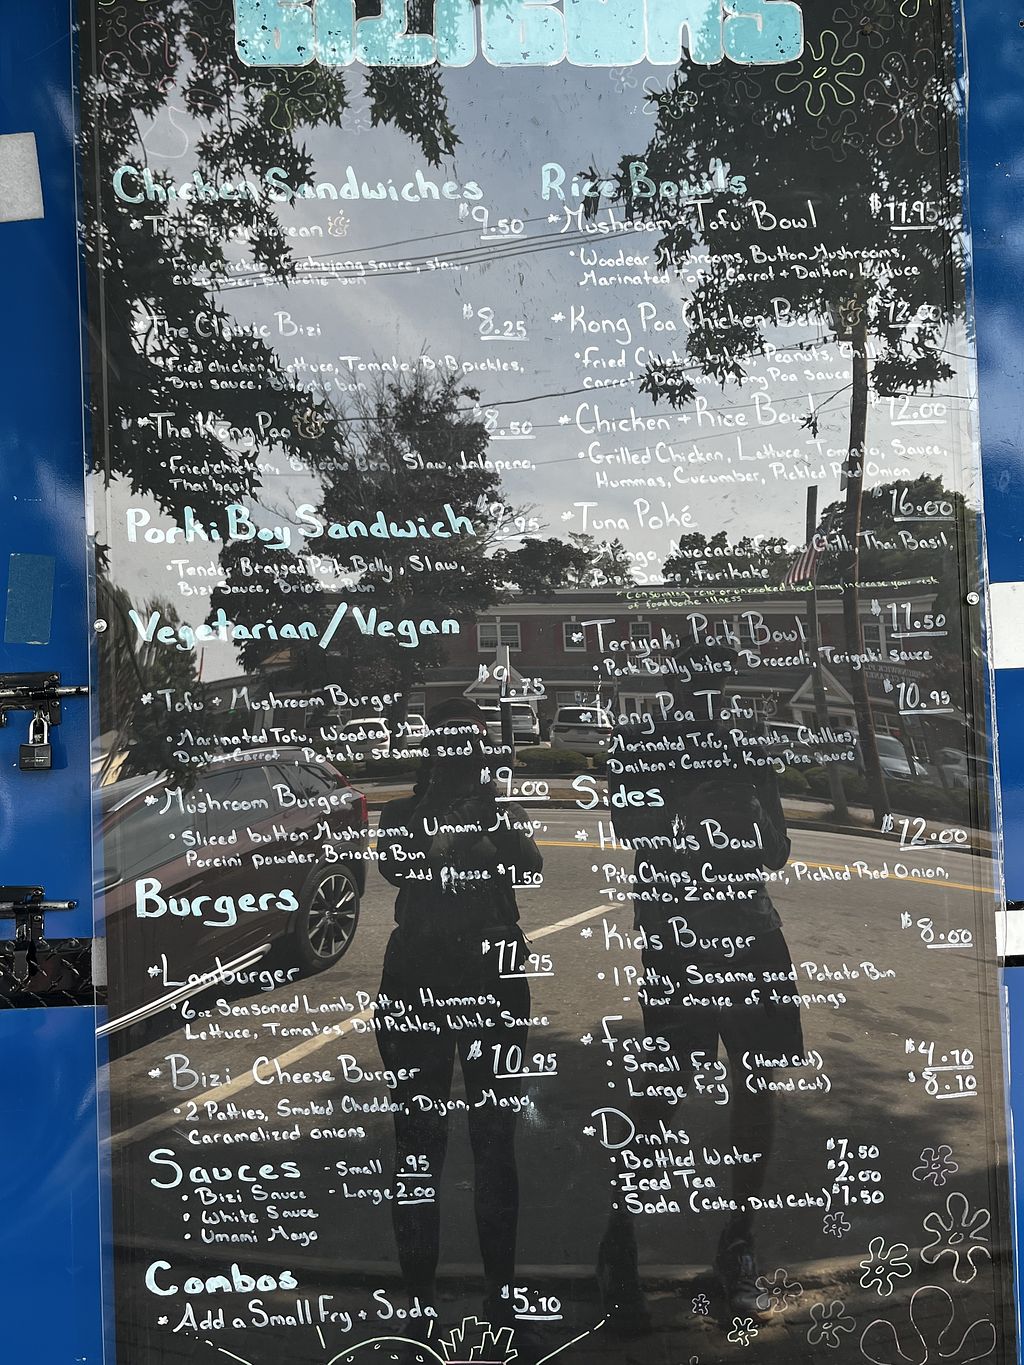 BiZi BUNS
Chicken Sandwiches
* The Spicy Korean $9.50
• Fried chicken, Gochujang sauce, slaw,
cucumber, Brioche bun
* The Classic Bizi $8.25
• Fried chicken, Lettuce, Tomato, B+B pickles,
Bizi sauce, Brioche bun
* The Kong Poa $8.50
• Fried chicken, Brioche Bun, Slaw, Jalapeno,
Thai basil
Porki Boy Sandwich $9.95
• Tender Braised Pork Belly, Slaw,
Bizi Sauce, Brioche Bun
Vegetarian/Vegan
* Tofu + Mushroom Burger $9.75
• Marinated Tofu, Woodear Mushrooms,
Daikon+Carrot, Potato sesame seed bun
* Mushroom Burger $9.00
• Sliced button Mushrooms, Umami Mayo,
Porcini powder, Brioche Bun
- Add Cheese $1.50
Burgers
* Lamburger $11.95
• 6oz Seasoned Lamb Patty, Hummos,
Lettuce, Tomatos, Dill Pickles, White Sauce
* Bizi Cheese Burger $10.95
• 2 Patties, Smoked Cheddar, Dijon, Mayo,
Caramelized onions
Sauces - Small .95
• Bizi Sauce - Large 2.00
• White Sauce
• Umami Mayo
Combos
* Add a Small Fry + Soda $5.10
Rice Bowls
* Mushroom + Tofu Bowl $11.95
• Woodear Mushrooms, Button Mushrooms,
Marinated Tofu, Carrot + Daikon, Lettuce
* Kong Poa Chicken Bowl $12.00
• Fried Chicken bites, Peanuts, Chillies,
carrot + Daikon, Kong Poa sauce
* Chicken + Rice Bowl $12.00
• Grilled Chicken, Lettuce, Tomato, Sauce,
Hummas, Cucumber, Pickled Red Onion
* Tuna Poké $16.00
• Mango, Avocado, Fresno Chili, Thai Basil,
Bizi Sauce, Furikake
* Consuming raw or uncooked food may increase your risk
of foodborne illness
* Teriyaki Pork Bowl $11.50
• Pork Belly bites, Broccoli, Teriyaki sauce
* Kong Poa Tofu $10.95
• Marinated Tofu, Peanuts, Chillies,
Daikon + Carrot, Kong Poa sauce
Sides
* Hummus Bowl $12.00
• Pita Chips, Cucumber, Pickled Red Onion,
Tomato, Za'atar
* Kids Burger $8.00
• 1 Patty, Sesame seed Potato Bun
- Your choice of toppings
* Fries
• Small Fry (Hand cut) $4.10
• Large Fry (Hand cut) $8.10
* Drinks
• Bottled Water $1.50
• Iced Tea $2.00
• Soda (Coke, Diet Coke) $1.50